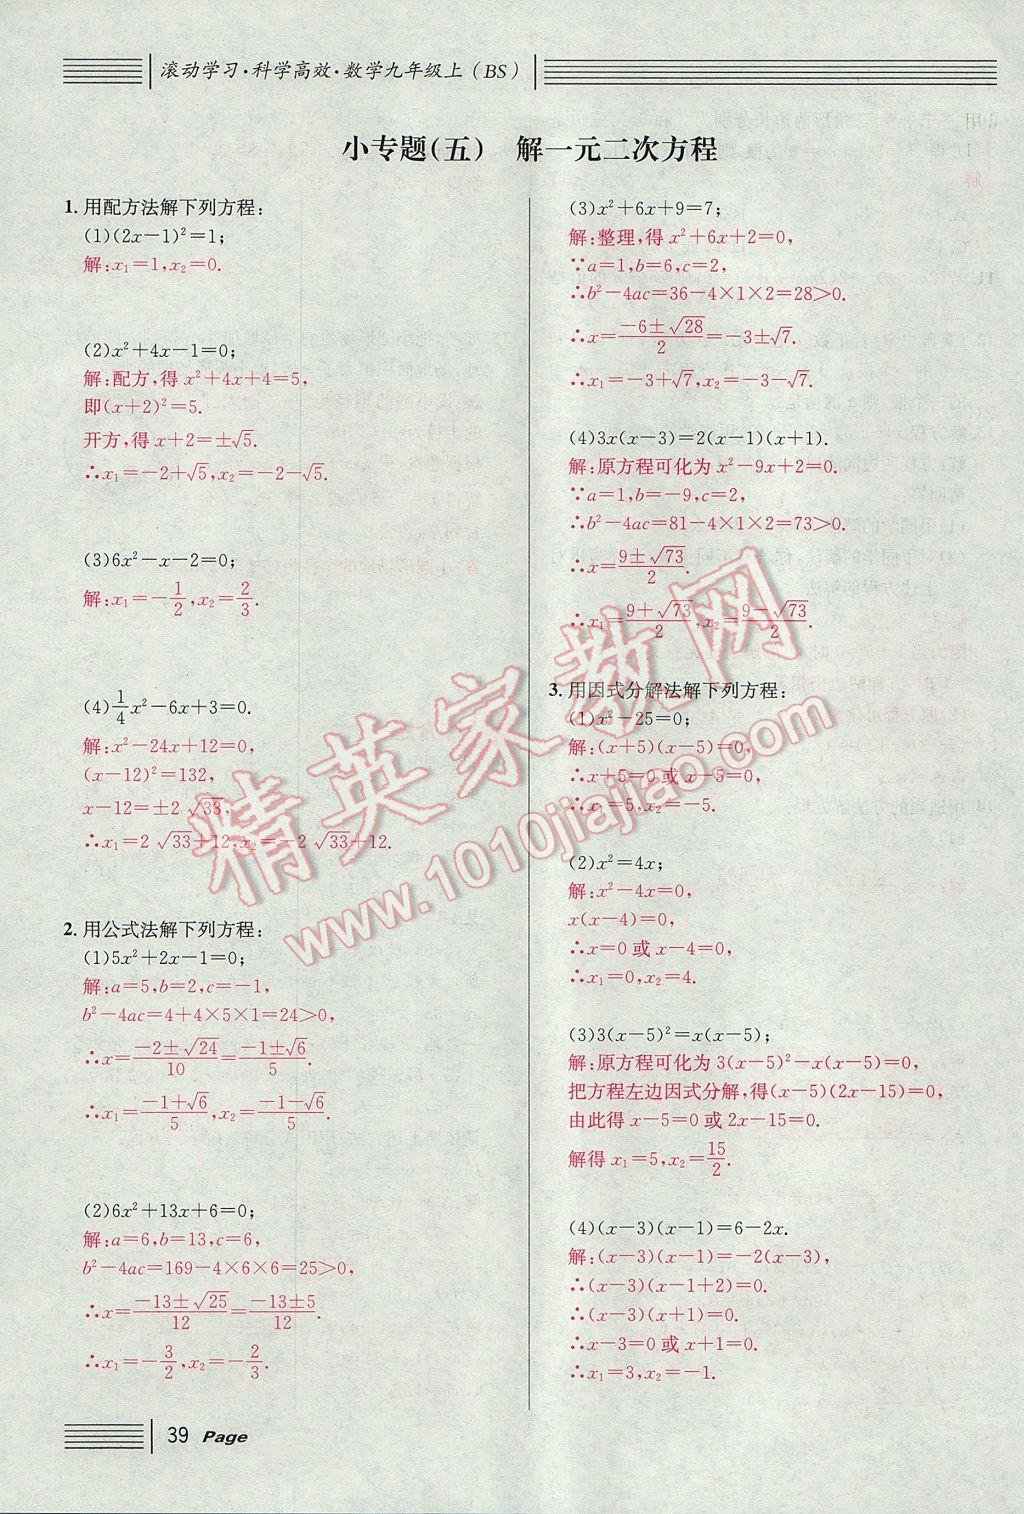 滚动学习·科学高效·数学九年级上(BS)
小专题(五) 解一元二次方程
1. 用配方法解下列方程:
(1)(2x-1)²=1;
解:x₁=1,x₂=0.
(2)x²+4x-1=0;
解:配方,得x²+4x+4=5,
即(x+2)²=5.
开方,得x+2=±√5.
∴x₁=-2+√5,x₂=-2-√5.
(3)6x²-x-2=0;
解:x₁=-1/2,x₂=2/3.
(4)1/4x²-6x+3=0.
解:x²-24x+12=0,
(x-12)²=132,
x-12=±2√33,
∴x₁=2√33+12,x₂=-2√33+12.
2. 用公式法解下列方程:
(1)5x²+2x-1=0;
解:a=5,b=2,c=-1,
b²-4ac=4+4×5×1=24>0,
∴x=(-2±√24)/10=(-1±√6)/5.
∴x₁=(-1+√6)/5,x₂=(-1-√6)/5.
(2)6x²+13x+6=0;
解:a=6,b=13,c=6,
b²-4ac=169-4×6×6=25>0,
∴x=(-13±√25)/12=(-13±5)/12.
∴x₁=-3/2,x₂=-2/3.
(3)x²+6x+9=7;
解:整理,得x²+6x+2=0,
∵a=1,b=6,c=2,
∴b²-4ac=36-4×1×2=28>0.
∴x=(-6±√28)/2=-3±√7.
∴x₁=-3+√7,x₂=-3-√7.
(4)3x(x-3)=2(x-1)(x+1).
解:原方程可化为x²-9x+2=0.
∵a=1,b=-9,c=2,
∴b²-4ac=81-4×1×2=73>0.
∴x=(9±√73)/2.
∴x₁=(9+√73)/2,x₂=(9-√73)/2.
3. 用因式分解法解下列方程:
(1)x²-25=0;
解:(x+5)(x-5)=0,
∴x+5=0或x-5=0.
∴x₁=5,x₂=-5.
(2)x²=4x;
解:x²-4x=0,
x(x-4)=0,
∴x=0或x-4=0.
∴x₁=0,x₂=4.
(3)3(x-5)²=x(x-5);
解:原方程可化为3(x-5)²-x(x-5)=0,
把方程左边因式分解,得(x-5)(2x-15)=0,
由此得x-5=0或2x-15=0.
解得x₁=5,x₂=15/2.
(4)(x-3)(x-1)=6-2x.
解:(x-3)(x-1)=-2(x-3),
∴(x-3)(x-1+2)=0.
∴(x-3)(x+1)=0.
∴x-3=0或x+1=0.
∴x₁=3,x₂=-1.
39 Page
精英家教网
www.1010jiajiao.com